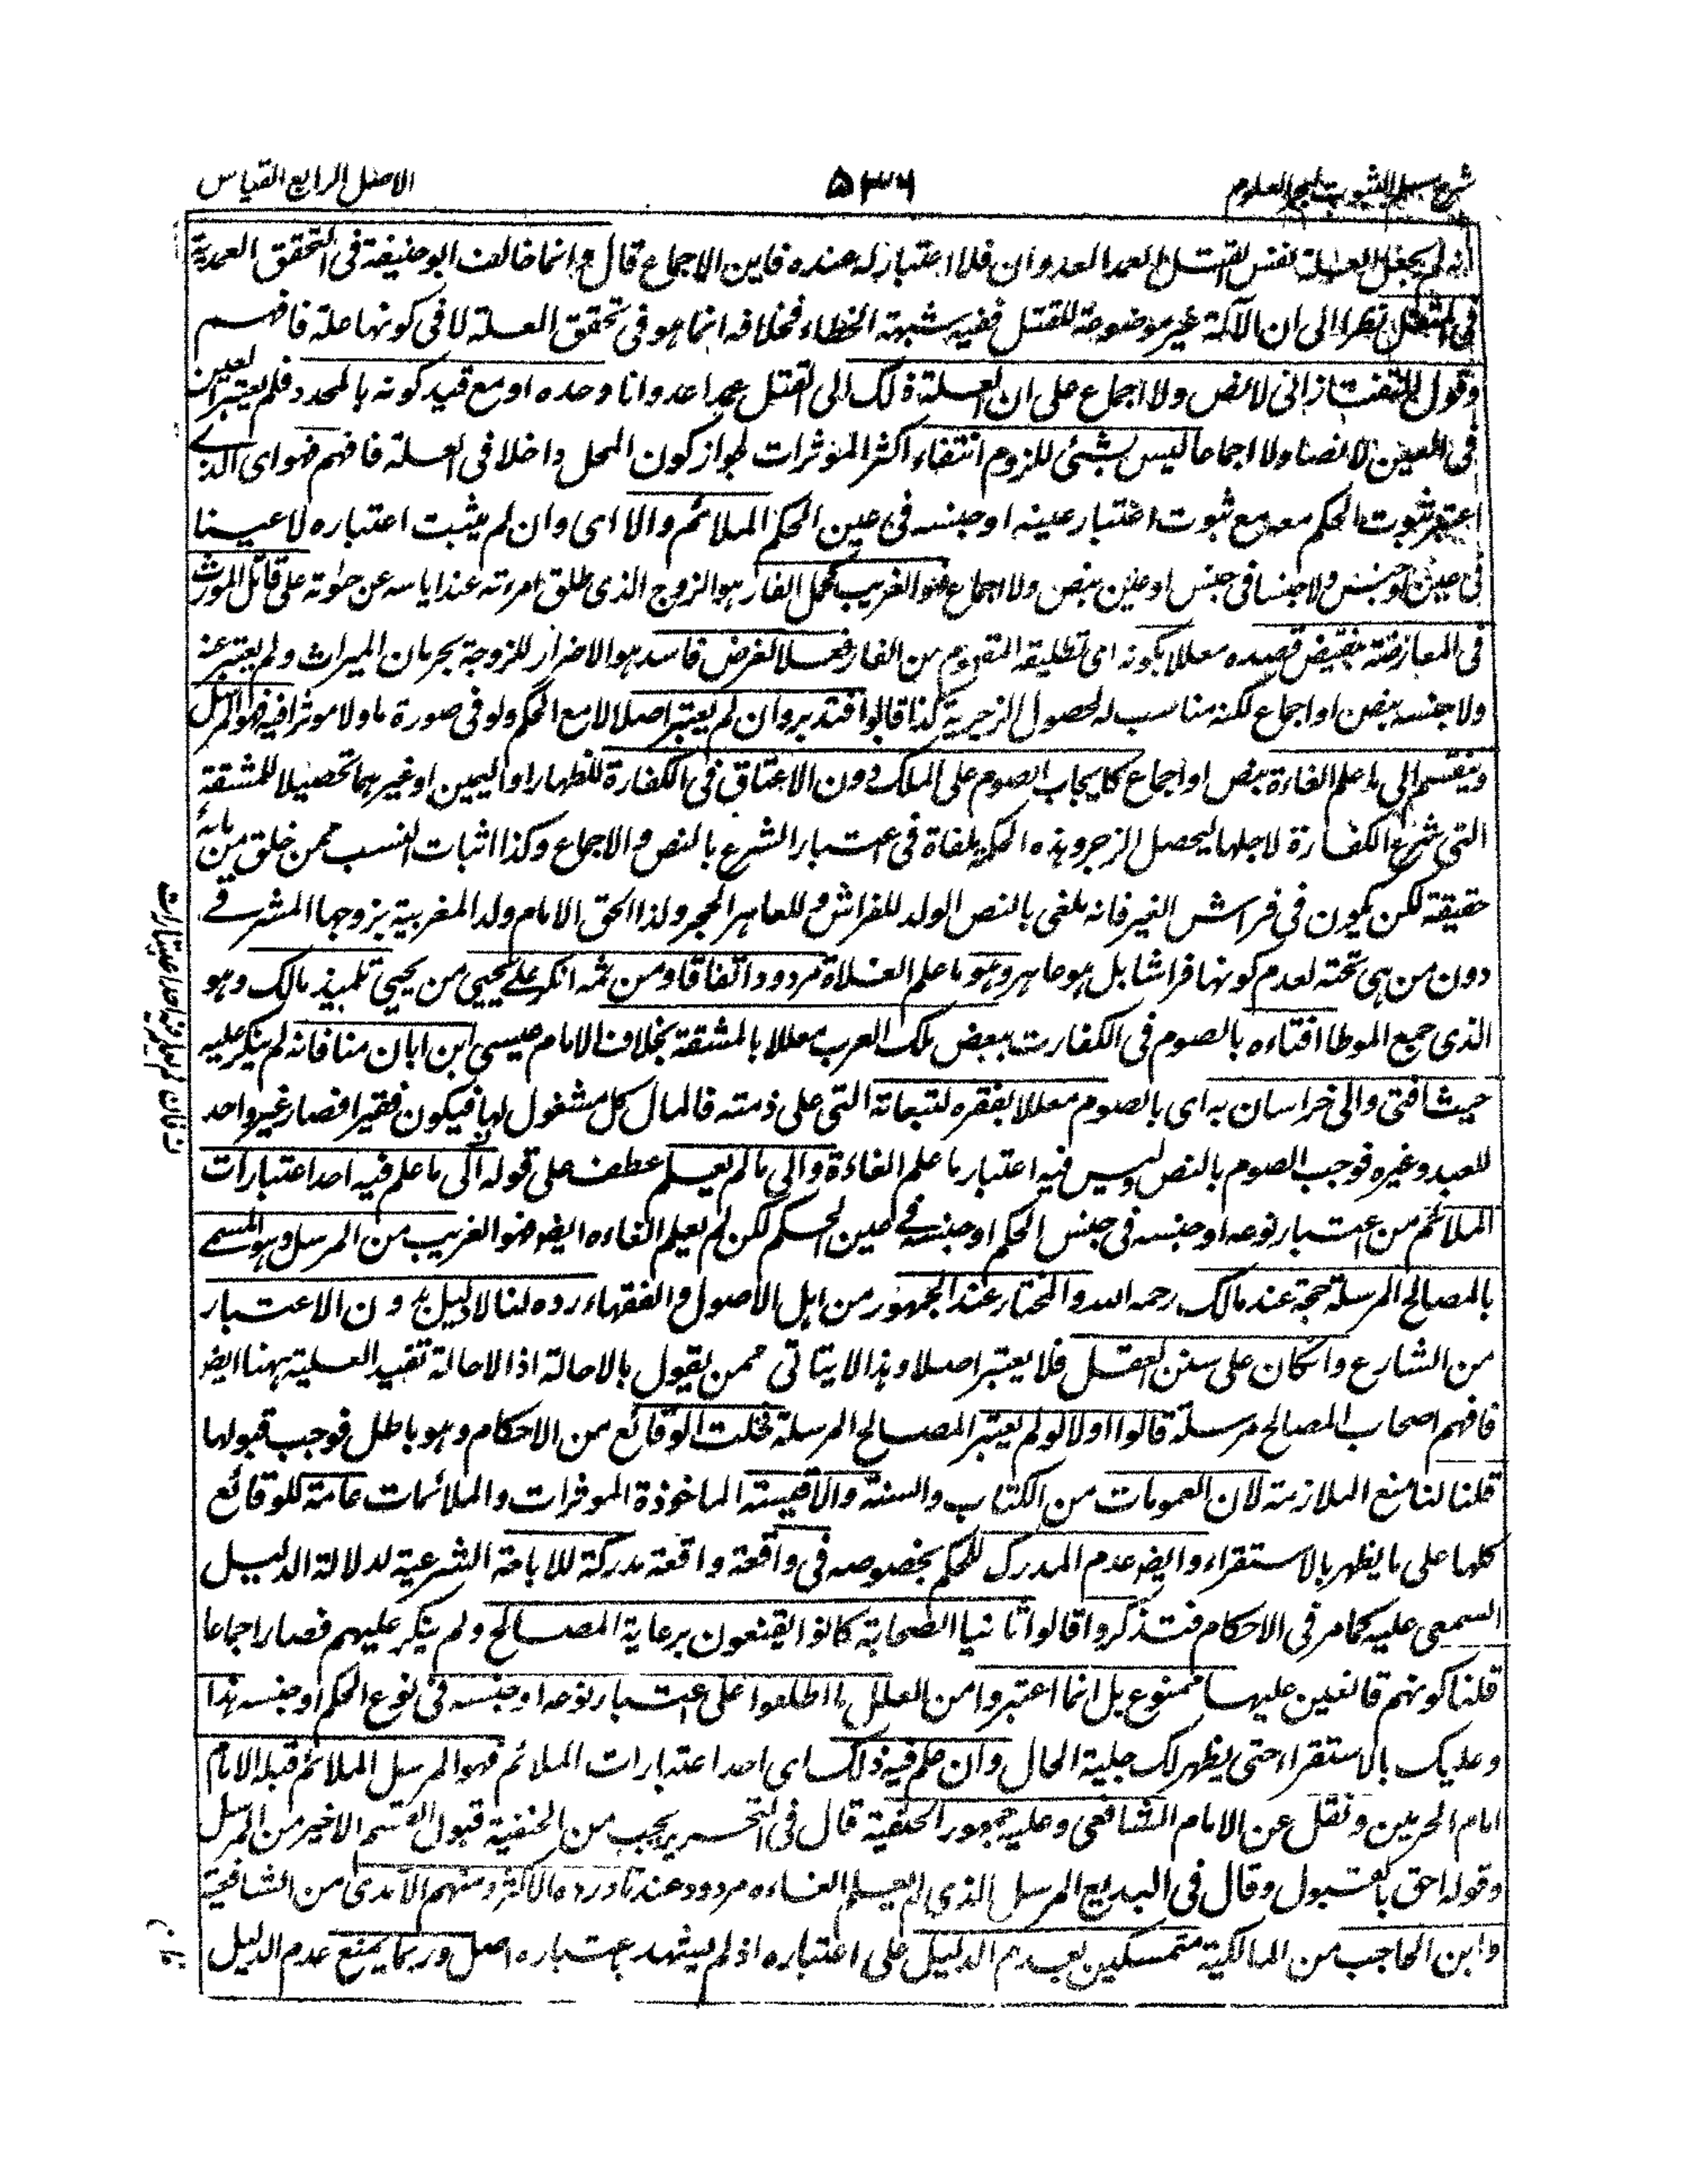 شرح مسلم الثبوت لبحر العلوم
۵۳۶
الاصل الرابع القياس
انه لم يجعل العلة نفس القتل العمد العدوان فلا اعتبار له عنده فاين الاجماع قال وانما خالف ابو حنيفة فى التحقق العمدية
فى المثقل نظرا الى ان الآلة غير موضوعة للقتل ففيه شبهة الخطاء فخلافه انما هو فى تحقق العلة لا فى كونها علة فافهم
وقول التفتازانى لا نص ولا اجماع على ان العلة ذلك الى القتل عمدا عدوانا وحده او مع قيد كونه بالمحدد فلم يعتبر العين
فى العين لا نصا ولا اجماعا ليس بشئ للزوم انتفاء اكثر المؤثرات لجواز كون المحل داخلا فى العلة فافهم فهو اى الذى
اعتبر ثبوت الحكم معه مع ثبوت اعتبار عينه او جنسه فى عين الحكم الملائم والا اى وان لم يثبت اعتباره لا عينا
فى عين او جنس ولا جنسا فى جنس او عين بنص ولا اجماع فهو الغريب كحمل الفار هو الزوج الذى طلق امرءته عند اياسه عن حلوته على قاتل المورث
فى المعارضة بنقيض قصده معللا بكونه اى تطليقه من الفار فعلا لغرض فاسد هو الاضرار للزوجة بحرمان الميراث ولم يعتبر عينه
ولا جنسه بنص او اجماع لكنه مناسب له لحصول الزجر به كذا قالوا فتدبر وان لم يعتبر اصلا لا مع الحكم ولو فى صورة ما ولا موثرا فيه فهو المرسل
وينقسم الى ما علم الغاءه بنص او اجماع كايجاب الصوم على الملك دون الاعتاق فى الكفارة للظهار او اليمين او غيرهما تحصيلا للمشقة
التى شرع الكفارة لاجلها ليحصل الزجر وهذه الحكمة ملغاة فى اعتبار الشرع بالنص والاجماع وكذا اثبات النسب ممن خلق من مائه
حقيقة لكن يكون فى فراش الغير فانه ملغى بالنص الولد للفراش وللعاهر الحجر ولذا الحق الامام ولد المغربية بزوجها المشرقى
دون من هى تحته لعدم كونها فراشا بل هو عاهر وهو ما علم الغاءه مردود اتفاقا ومن ثمه انكر على يحيى من يحيى تلميذ مالك وهو
الذى جمع الموطا افتاءه بالصوم فى الكفارت بعض ملك العرب معللا بالمشقة بخلاف الامام عيسى ابن ابان منا فانه لم ينكر عليه
حيث افتى والى خراسان به اى بالصوم معللا بفقره لتبعاته التى على ذمته فالمال كل مشغول لها فيكون فقيرا فصار غير واجد
للعبد وغيره فوجب الصوم بالنص وليس فيه اعتبار ما علم الغاءه والى ما لم يعلم عطف على قوله الى ما علم فيه احد اعتبارات
الملائم من اعتبار نوعه او جنسه فى جنس الحكم او جنسه فى عين الحكم لكن لم يعلم الغاءه ايضا فهو الغريب من المرسل وهو المسمى
بالمصالح المرسلة حجة عند مالك رحمه الله والمختار عند الجمهور من اهل الاصول والفقهاء رده لنا لا دليل بدون الاعتبار
من الشارع وان كان على سنن العقل فلا يعتبر اصلا وهذا لا يتاتى ممن يقول بالاحالة اذ الاحالة تفيد العلية ههنا ايضا
فافهم اصحاب المصالح مرسلة قالوا اولا لو لم يعتبر المصالح المرسلة لخلت الوقائع من الاحكام وهو باطل فوجب قبولها
قلنا لنا منع الملازمة لان العمومات من الكتاب والسنة والاقيسة الماخوذة الموثرات والملائمات عامة للوقائع
كلها على ما يظهر بالاستقراء وايضا عدم المدرك للحكم بخصوصه فى واقعة واقعة مدركة للاباحة الشرعية لدلالة الدليل
السمعى عليه كما مر فى الاحكام فتذكر وا قالوا ثانيا الصحابة كانوا يقنعون برعاية المصالح ولم ينكر عليهم فصار اجماعا
قلنا كونهم قانعين عليها ممنوع بل انما اعتبروا من العلل ما اطلعوا على اعتبار نوعه او جنسه فى نوع الحكم او جنسه هذا
وعليك بالاستقراء حتى يظهر لك جلية الحال وان علم فيه ذلك اى احد اعتبارات الملائم فهو المرسل الملائم قبله الامام
امام الحرمين ونقل عن الامام الشافعى وعليه جمهور الحنفية قال فى التحرير يجب من الحنفية قبول القسم الاخير من المرسل
وقوله احق بالقبول وقال فى البديع المرسل الذى لم يعلم الغاءه مردود عندنا ورده الاكثر ومنهم الآمدى من الشافعية
وابن الحاجب من المالكية متمسكين بعدم الدليل على اعتباره اذ لم يشهد باعتباره اصل وربما يمنع عدم الدليل